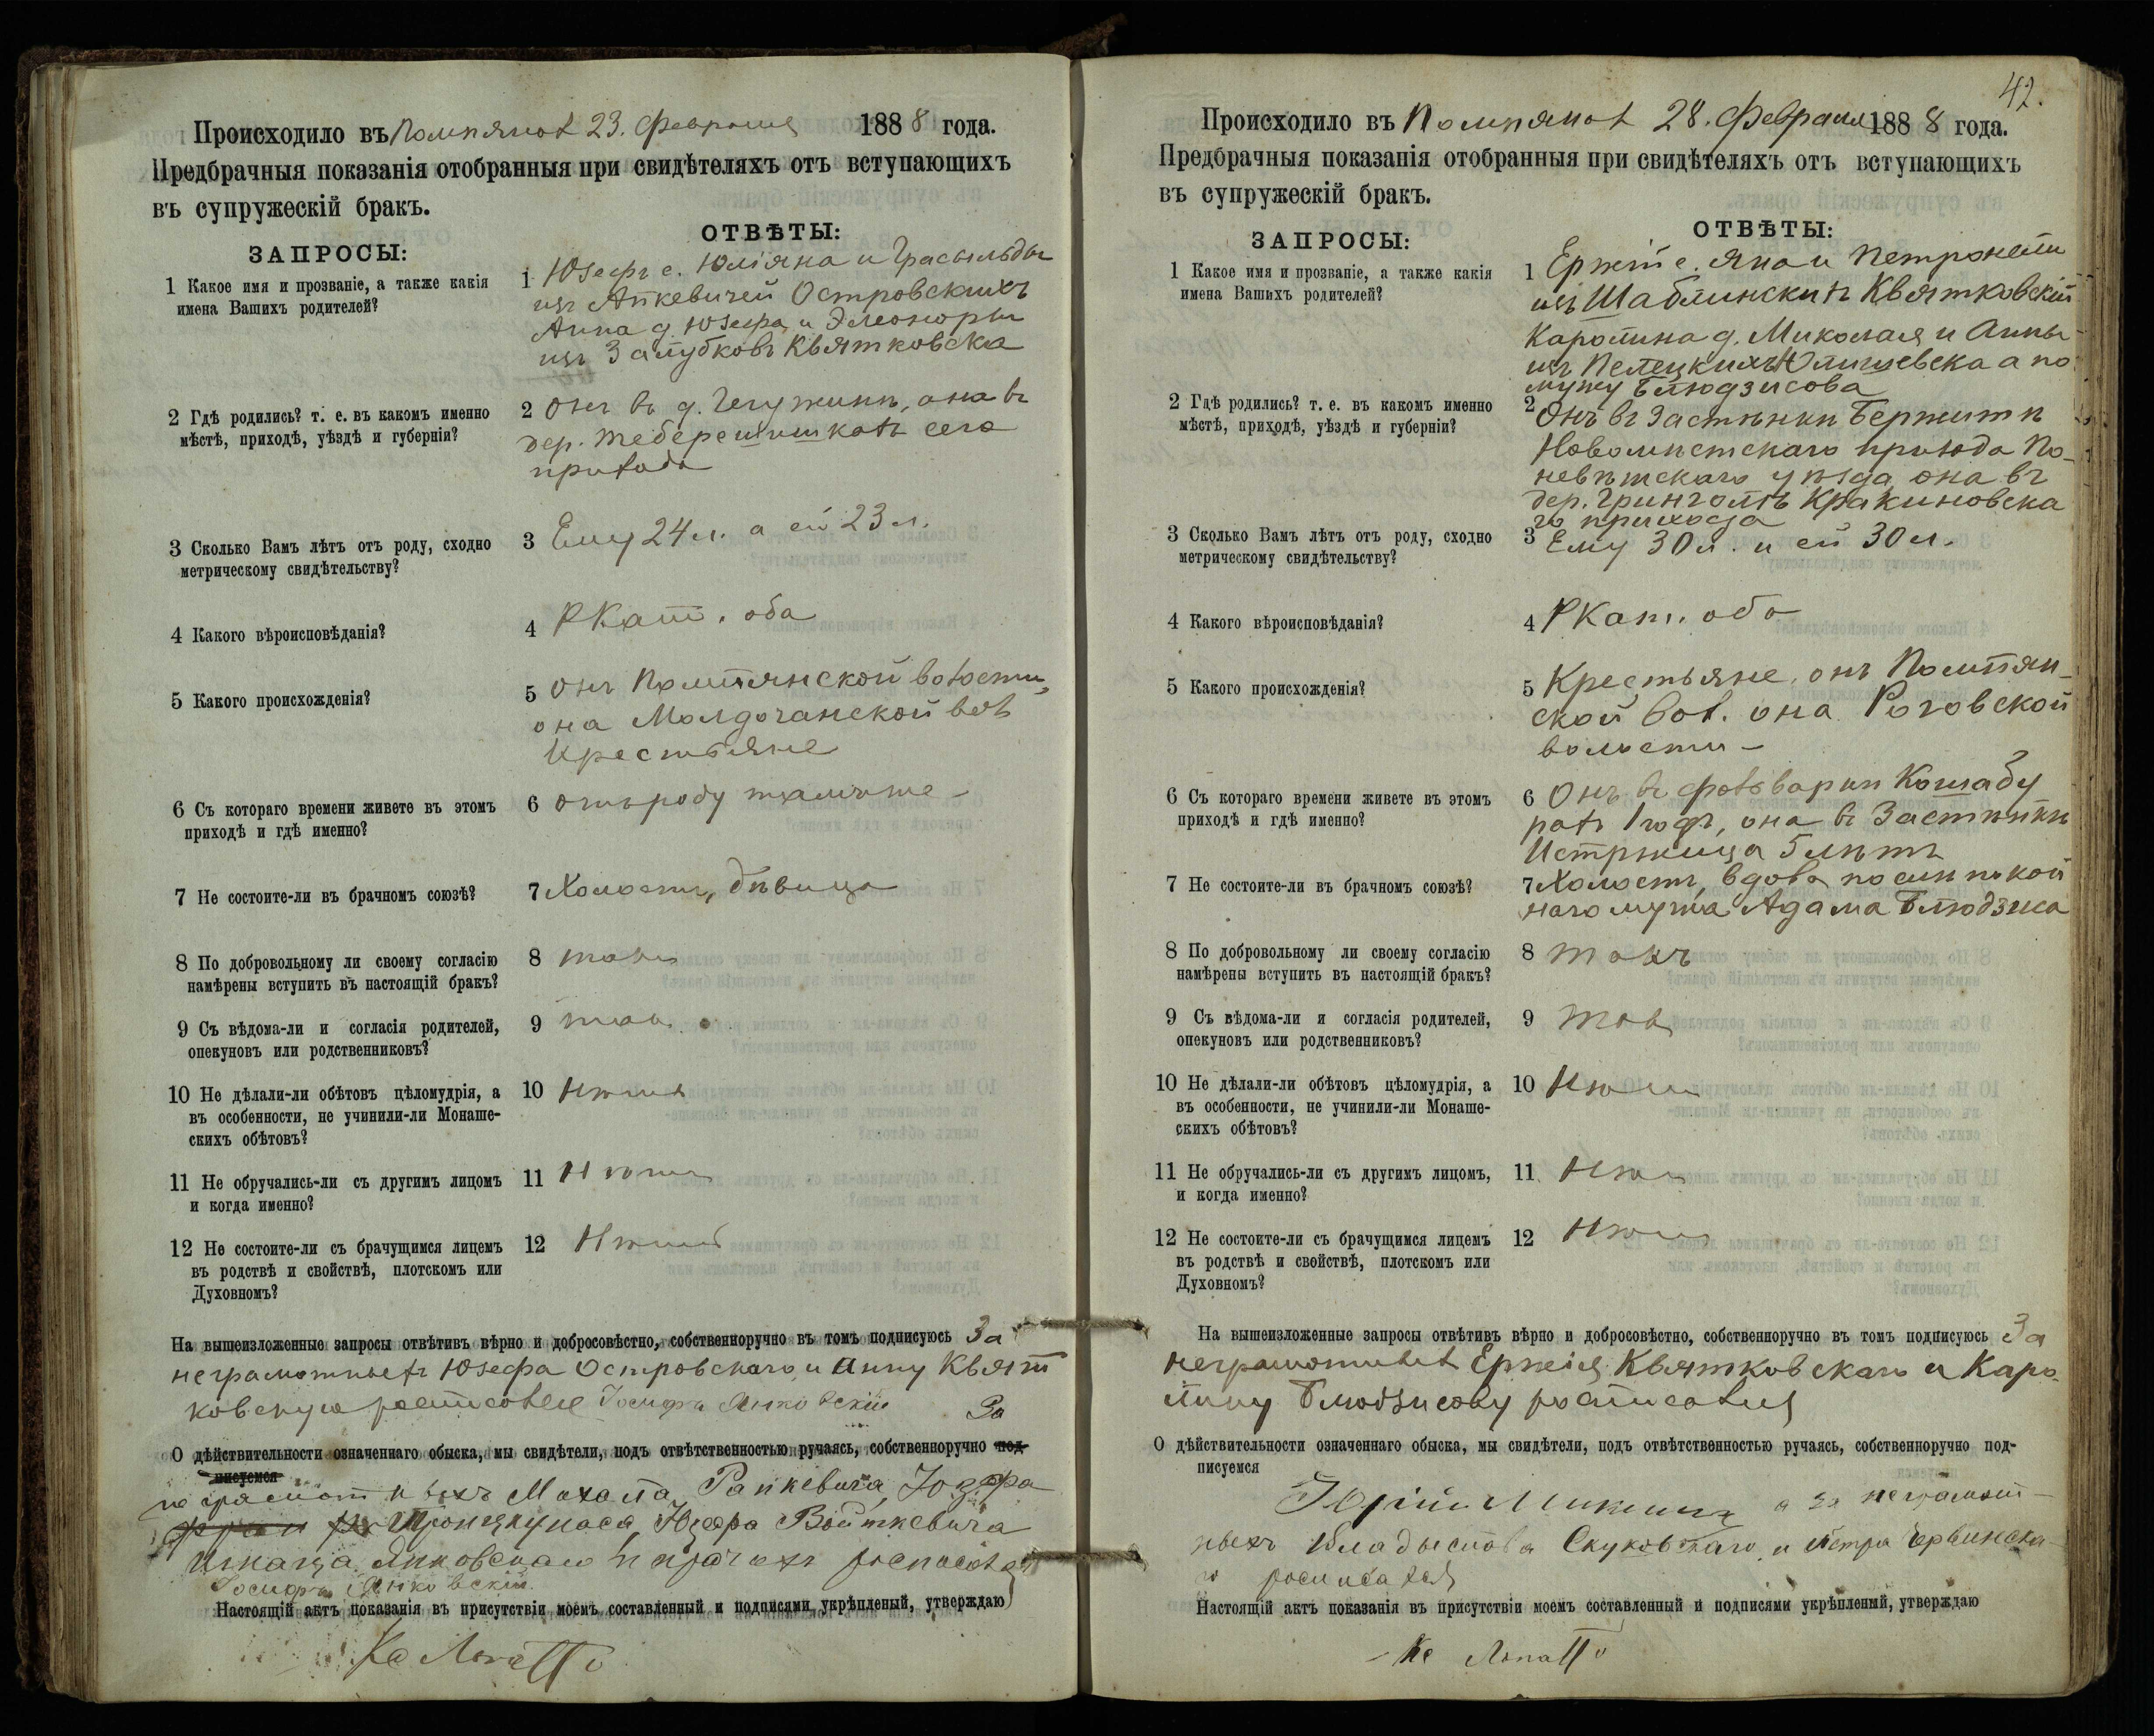 Происходило въ Помпянах 23. Февраля 1888 года.
Предбрачныя показанія отобранныя при свидѣтеляхъ отъ вступающихъ
въ супружескій бракъ.
ЗАПРОСЫ:
ОТВѢТЫ:
1 Какое имя и прозваніе, а также какія
имена Вашихъ родителей?
1 Юзефъ с. Юліяна и
изъ Островскихъ
Анна д. Юзефа и Элеоноры
изъ Квятковска
2 Гдѣ родились? т. е. въ какомъ именно
мѣстѣ, приходѣ, уѣздѣ и губерніи?
2 Онъ въ д. она въ
дер. сего
прихода
3 Сколько Вамъ лѣтъ отъ роду, сходно
метрическому свидѣтельству?
3 Ему 24 л. а ей 23 л.
4 Какого вѣроисповѣданія?
4 РКат. оба
5 Какого происхожденія?
5 Онъ Помпянской волости,
она вол.
Крестьяне
6 Съ котораго времени живете въ этомъ
приходѣ и гдѣ именно?
6 Отъ роду тамъ же
7 Не состоите-ли въ брачномъ союзѣ?
7 Холостъ, дѣвица
8 По добровольному ли своему согласію
намѣрены вступить въ настоящій бракъ?
8 такъ
9 Съ вѣдома-ли и согласія родителей,
опекуновъ или родственниковъ?
9 такъ
10 Не дѣлали-ли обѣтовъ цѣломудрія, а
въ особенности, не учинили-ли Монаше-
скихъ обѣтовъ?
10 Нѣтъ
11 Не обручались-ли съ другимъ лицомъ
и когда именно?
11 Нѣтъ
12 Не состоите-ли съ брачущимся лицемъ
въ родствѣ и свойствѣ, плотскомъ или
Духовномъ?
12 Нѣтъ
На вышеизложенные запросы отвѣтивъ вѣрно и добросовѣстно, собственноручно въ томъ подписуюсь За
неграмотныхъ Юзефа Островскаго и Анну Квят
ковскую Іосифъ Янковскій За
О дѣйствительности означеннаго обыска, мы свидѣтели, подъ отвѣтственностью ручаясь, собственноручно под-
писуемся
неграмотныхъ Юзефа
Юзефа Войткевича
Янковскаго
Іосифъ Янковскій
Настоящій актъ показанія въ присутствіи моемъ составленный и подписями укрѣпленый, утверждаю
Кс Лопатто
42.
Происходило въ Помпянах 28. Февраля 1888 года.
Предбрачныя показанія отобранныя при свидѣтеляхъ отъ вступающихъ
въ супружескій бракъ.
ЗАПРОСЫ:
ОТВѢТЫ:
1 Какое имя и прозваніе, а также какія
имена Вашихъ родителей?
1 с. Яна и Петронели
изъ Шаблинскихъ Квятковскій
Каролина д. Миколая и Анны
изъ а по
мужу Блюдзисова
2 Гдѣ родились? т. е. въ какомъ именно
мѣстѣ, приходѣ, уѣздѣ и губерніи?
2 Онъ въ Застѣнкѣ
Новомѣстскаго прихода По-
невѣжскаго уѣзда она въ
дер. Кракиновска
го прихода
3 Сколько Вамъ лѣтъ отъ роду, сходно
метрическому свидѣтельству?
3 Ему 30 л. и ей 30 л.
4 Какого вѣроисповѣданія?
4 РКат. оба
5 Какого происхожденія?
5 Крестьяне, онъ Помпян-
ской вол. она Роговской
волости
6 Съ котораго времени живете въ этомъ
приходѣ и гдѣ именно?
6 Онъ въ фольваркѣ
1 годъ, она въ Застѣнкѣ
5 лѣтъ
7 Не состоите-ли въ брачномъ союзѣ?
7 Холостъ, вдова
мужа Адама Блюдзиса
8 По добровольному ли своему согласію
намѣрены вступить въ настоящій бракъ?
8 такъ
9 Съ вѣдома-ли и согласія родителей,
опекуновъ или родственниковъ?
9 такъ
10 Не дѣлали-ли обѣтовъ цѣломудрія, а
въ особенности, не учинили-ли Монаше-
скихъ обѣтовъ?
10 Нѣтъ
11 Не обручались-ли съ другимъ лицомъ,
и когда именно?
11 Нѣтъ
12 Не состоите-ли съ брачущимся лицемъ
въ родствѣ и свойствѣ, плотскомъ или
Духовномъ?
12 Нѣтъ
На вышеизложенные запросы отвѣтивъ вѣрно и добросовѣстно, собственноручно въ томъ подписуюсь За
неграмотныхъ Квятковскаго и Каро-
лину Блюдзисову
О дѣйствительности означеннаго обыска, мы свидѣтели, подъ отвѣтственностью ручаясь, собственноручно под-
писуемся
а за неграмот-
ныхъ и Петра Червинска-
го росписался
Настоящій актъ показанія въ присутствіи моемъ составленный и подписями укрѣпленый, утверждаю
Кс Лопатто